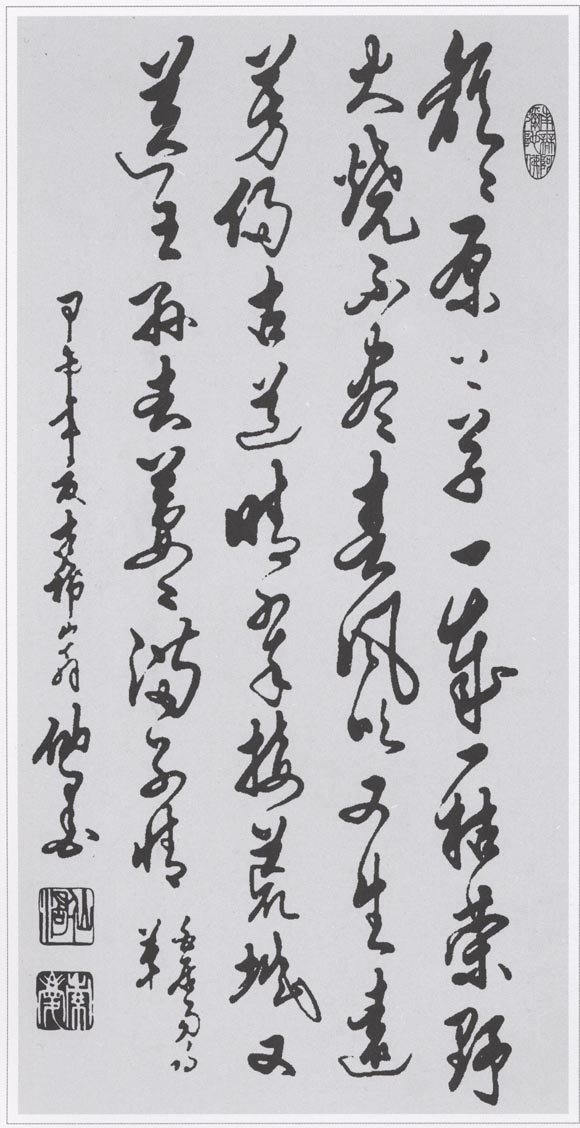 離〻原上草一歲一枯榮野
火燒不盡春風吹又生遠
芳侵古道晴翠接荒城又
送王孫去萋〻滿別情
居易
草
甲午年夏
山翁